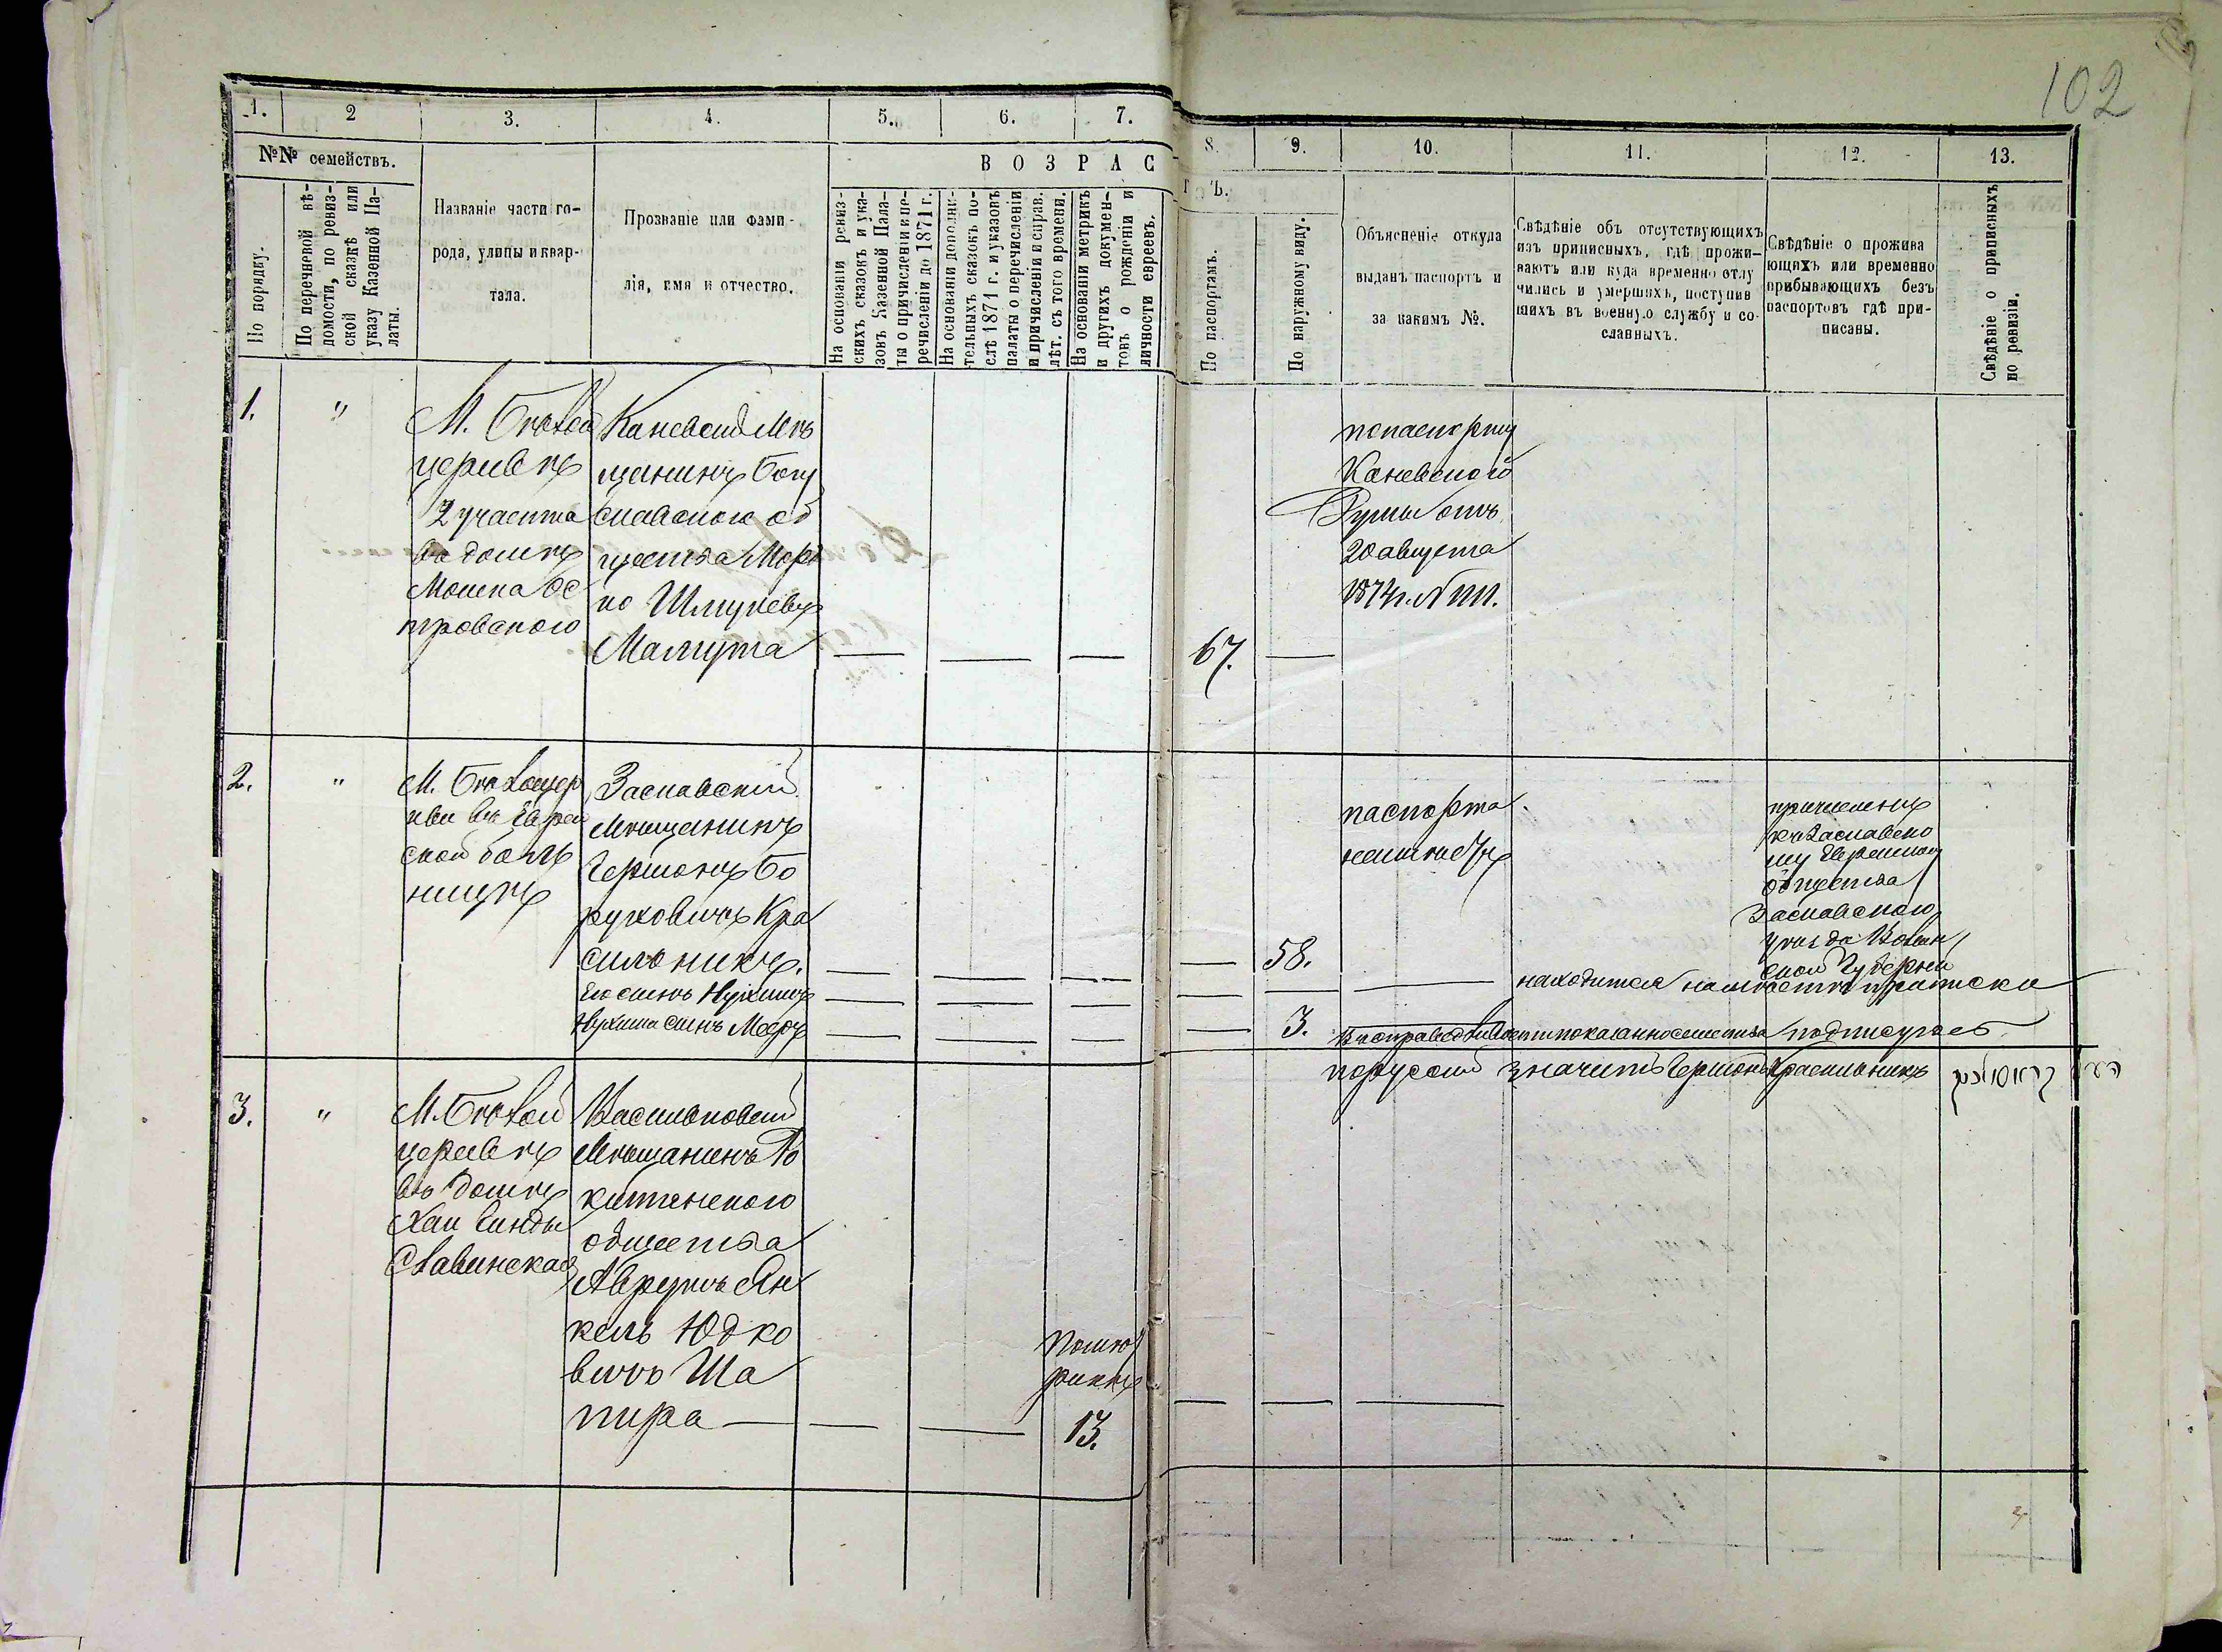 102
1.
2
3.
4.
5.
6.
7.
8.
9.
10.
11.
12.
13.
№№ семействъ.
По порядку.
По перечневой вѣ-
домости, по ревиз-
ской сказкѣ или
указу Казенной Па-
латы.
Названіе части го-
рода, улицы и квар-
тала.
Прозваніе или фами-
лія, имя и отчество.
ВОЗРАС
ТЪ.
На основаніи ревиз-
скихъ сказокъ и ука-
зовъ Казенной Пала-
ты о причисленіи и пе-
речисленіи до 1871 г.
На основаніи дополни-
тельныхъ сказокъ по-
слѣ 1871 г. и указовъ
палаты о перечисленіи
и причисленіи и справ.
лѣт. съ того времени.
На основаніи метрикъ
и другихъ докумен-
товъ о рожденіи и
личности евреевъ.
По паспортамъ.
По наружному виду.
Объясненіе откуда
выданъ паспортъ и
за какимъ №.
Свѣдѣніе объ отсутствующихъ
изъ приписныхъ, гдѣ прожи-
ваютъ или куда временно отлу
чились и умершихъ, поступив
шихъ въ военную службу и со-
сланныхъ.
Свѣдѣніе о прожива
ющихъ или временно
прибывающихъ безъ
паспортовъ гдѣ при-
писаны.
Свѣдѣніе о приписныхъ
по ревизіи.
1.
"
М. Бѣлой
церквѣ
2 участка
въ домѣ
Мошка Ос
тровского
Каневскій Мѣ
щанинъ Богу
славского об
щества Морд
ко Шмулевъ
Малута
67.
по паспорту
Каневской
Думы отъ
20 августа
1874 г. №
2.
"
М. Бѣлоцер
кви въ Еврей
ской боль
ницѣ
Заславскій
Мѣщанинъ
Гершонъ Бо
руховичъ Кра
сильникъ.
Его сынъ Нухимъ
Нухима сынъ Меер
58.
3.
паспорта
неимѣетъ
причисленъ
къ Заславско
му Еврейском
общества
Заславского
уѣзда Волын
ской Губерніи
находится на мѣстѣ приписки
Въ справедливости показанно семейства подписуюсь
по русски значитъ Гершонъ Красильникъ
3.
"
М. Бѣлой
церквѣ
въ домѣ
Хаи Синды
Славинская
Васильковскій
Мѣщанинъ Ро
китянского
общества
Аврумъ Ян
кель Юдко
вичъ Ша
пира
По мет
рики
13.